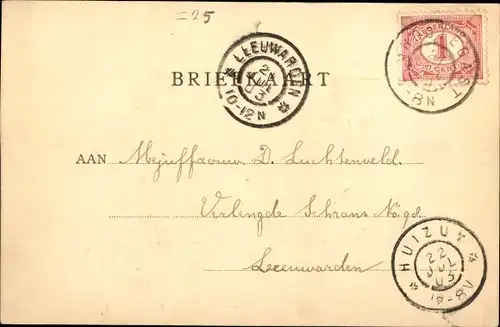 =25
BRIEFKAART
LEEUWARDEN
2 JUL 03
10-12N
NEDERLAND
1
CENT
8N
AAN Mejuffrouw D. Luchtenveld.
Verlengde Schrans
Leeuwarden
HUIZUM
22 JUL 03